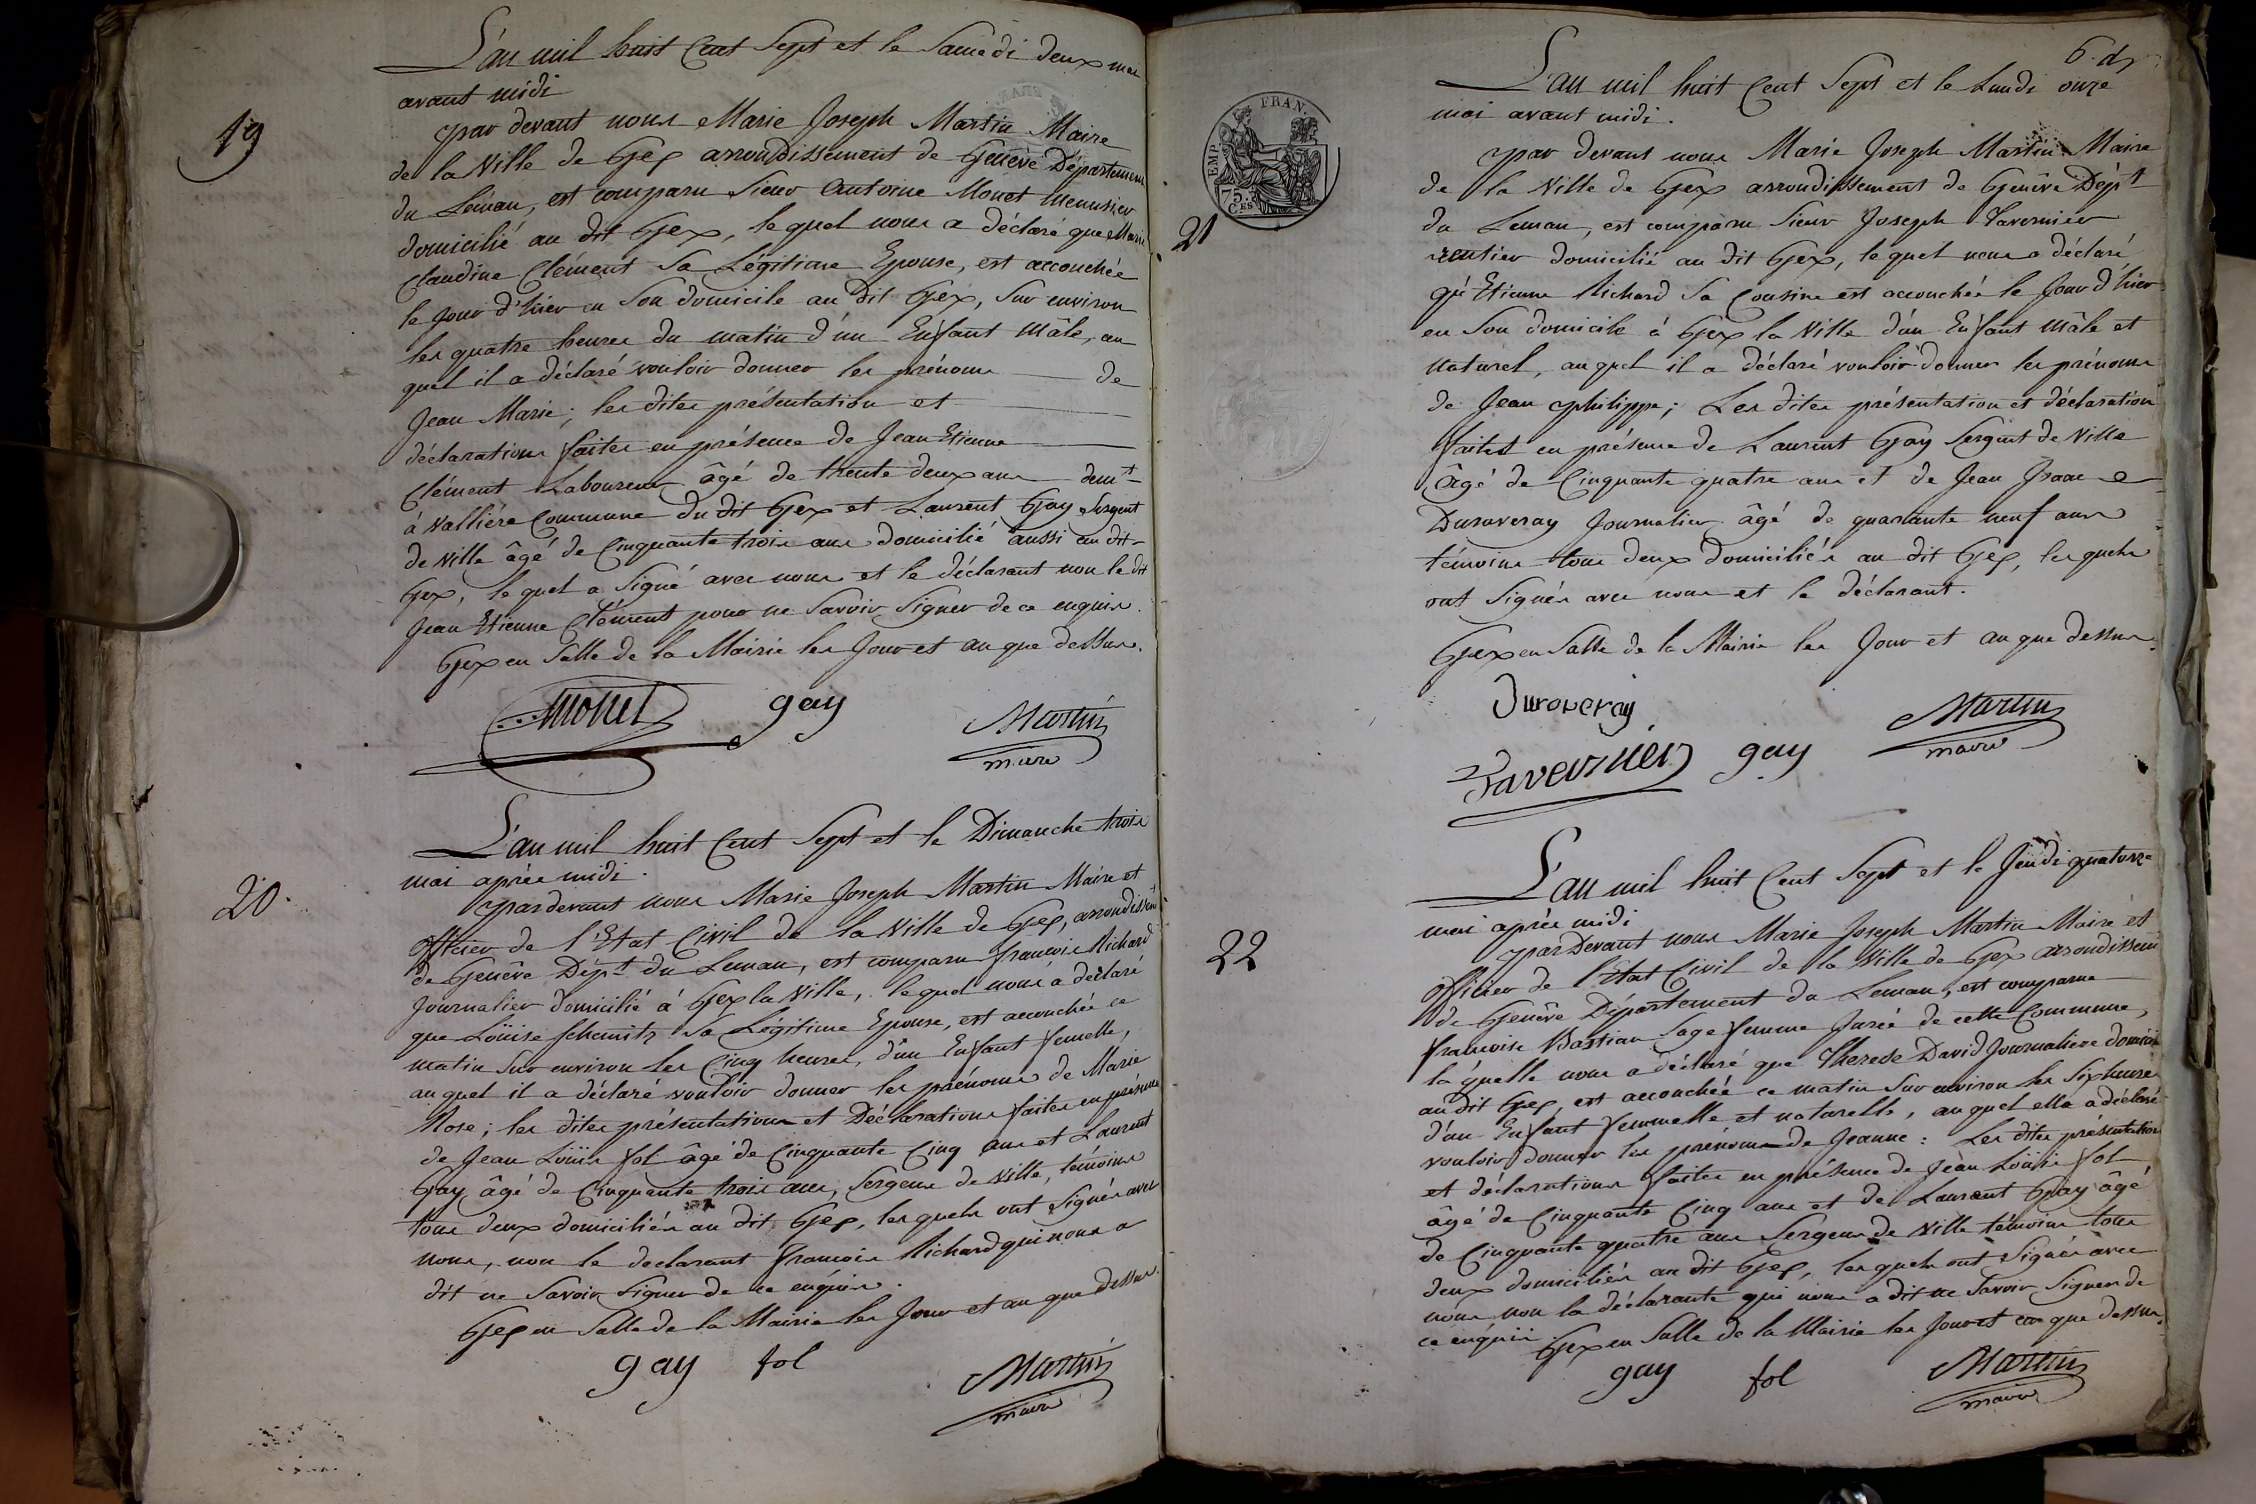 19
L'an mil huit Cent Sept et le Samedi deux mai
avant midi
par devant nous Marie Joseph Martin Maire
de la Ville de Gex arrondissement de Genève Département
du Leman, est comparu Sieur Antoine Monet menusier
domicilié au dit Gex, lequel nous a déclaré que Marie
Claudine Clément Sa Légitime Epouse, est accouchée
le Jour d'hier en Son domicile au dit Gex, Sur environ
les quatre heures du matin d'un Enfant Mâle, au
quel il a déclaré vouloir donner les prénoms de
Jean Marie; les dites présentation et
déclarations faites en présence de Jean Etienne
Clément Laboureur âgé de trente deux ans demt
à Vallière Commune du dit Gex et Laurent Gay Sergent
de Ville âgé de Cinquante trois ans domicilié aussi au dit
Gex, le quel a Signé avec nous et le déclarant non le dit
Jean Etienne Clément pour ne Savoir Signer de ce enquis.
Gex en Salle de la Mairie les Jour et an que dessus.
Monet gay Martin
maire
20.
L'an mil huit Cent Sept et le Dimanche trois
mai après midi.
pardevant nous Marie Joseph Martin Maire et
Officier de l'Etat Civil de la Ville de Gex, arrondissemt
de Genêve Dépt du Leman, est comparu françois Richard
Journalier domicilié à Gex la Ville, lequel nous a déclaré
que Loüise Schemitz Sa Légitime Epouse, est accouchée ce
matin Sur environ les Cinq heures, d'un Enfant femelle,
au quel il a déclaré vouloir donner les prénoms de Marie
Rose; les dites présentations et Déclarations faites en présence
de Jean Loüis fol âgé de Cinquante Cinq ans et Laurent
Gay âgé de Cinquante trois ans, Sergens de Ville, témoins
tous deux domiciliés au dit Gex, les quels ont Signés avec
nous, non le declarant françois Richard qui nous a
dit ne Savoir Signer de ce enquis.
Gex en Salle de la Mairie les Jour et an que dessus.
gay fol Martin
maire
6. d
EMP. FRAN.
75. CES
21
L'an mil huit Cent Sept et le Lundi onze
mai avant midi.
par devant nous Marie Joseph Martin Maire
de la Ville de Gex arrondissement de Genêve Dépt
du Leman, est comparu Sieur Joseph Tavernier
rentier domicilié au dit Gex, le quel nous a déclaré
qu'Etienne Richard Sa Cousine est accouchée le Jour d'hier
en Son domicile à Gex la Ville d'un Enfant Mâle et
Naturel, au quel il a déclaré vouloir donner les prénoms
de Jean philippe; Les dites présentation et déclaration
faites en présence de Laurent Gay Sergent de Ville
Âgé de Cinquante quatre ans et de Jean Isaac
Duroveray Journalier âgé de quarante neuf ans
témoins tous deux domiciliés au dit Gex, les quels
ont Signés avec nous et le déclarant.
Gex en Salle de la Mairie les Jour et an que dessus.
Duroveray Martin
Tavernier gay maire
22
L'an mil huit Cent Sept et le Jeudi quatorze
mai après midi
par Devant nous Marie Joseph Martin Maire et
Officier de l'Etat Civil de la Ville de Gex arrondissemt
de Genêve Département du Leman, est comparue
françoise Bastian Sage femme Jurée de cette Commune,
la quelle nous a déclaré que Therese David Journaliere domiciliée
au dit Gex, est accouchée ce matin Sur environ les Six heures
d'un Enfant femmelle et naturelle, au quel elle a déclaré
vouloir donner les prénoms de Jeanne: Les dites présentation
et déclarations faites en présence de Jean Loüis fol
âgé de Cinquante Cinq ans et de Laurent Gay âgé
de Cinquante quatre ans Sergens de Ville témoins tous
deux domiciliés au dit Gex, les quels ont Signés avec
nous non la déclarante qui nous a dit ne Savoir Signer de
ce enquis. Gex en Salle de la Mairie les Jour et an que dessus.
gay fol Martin
maire